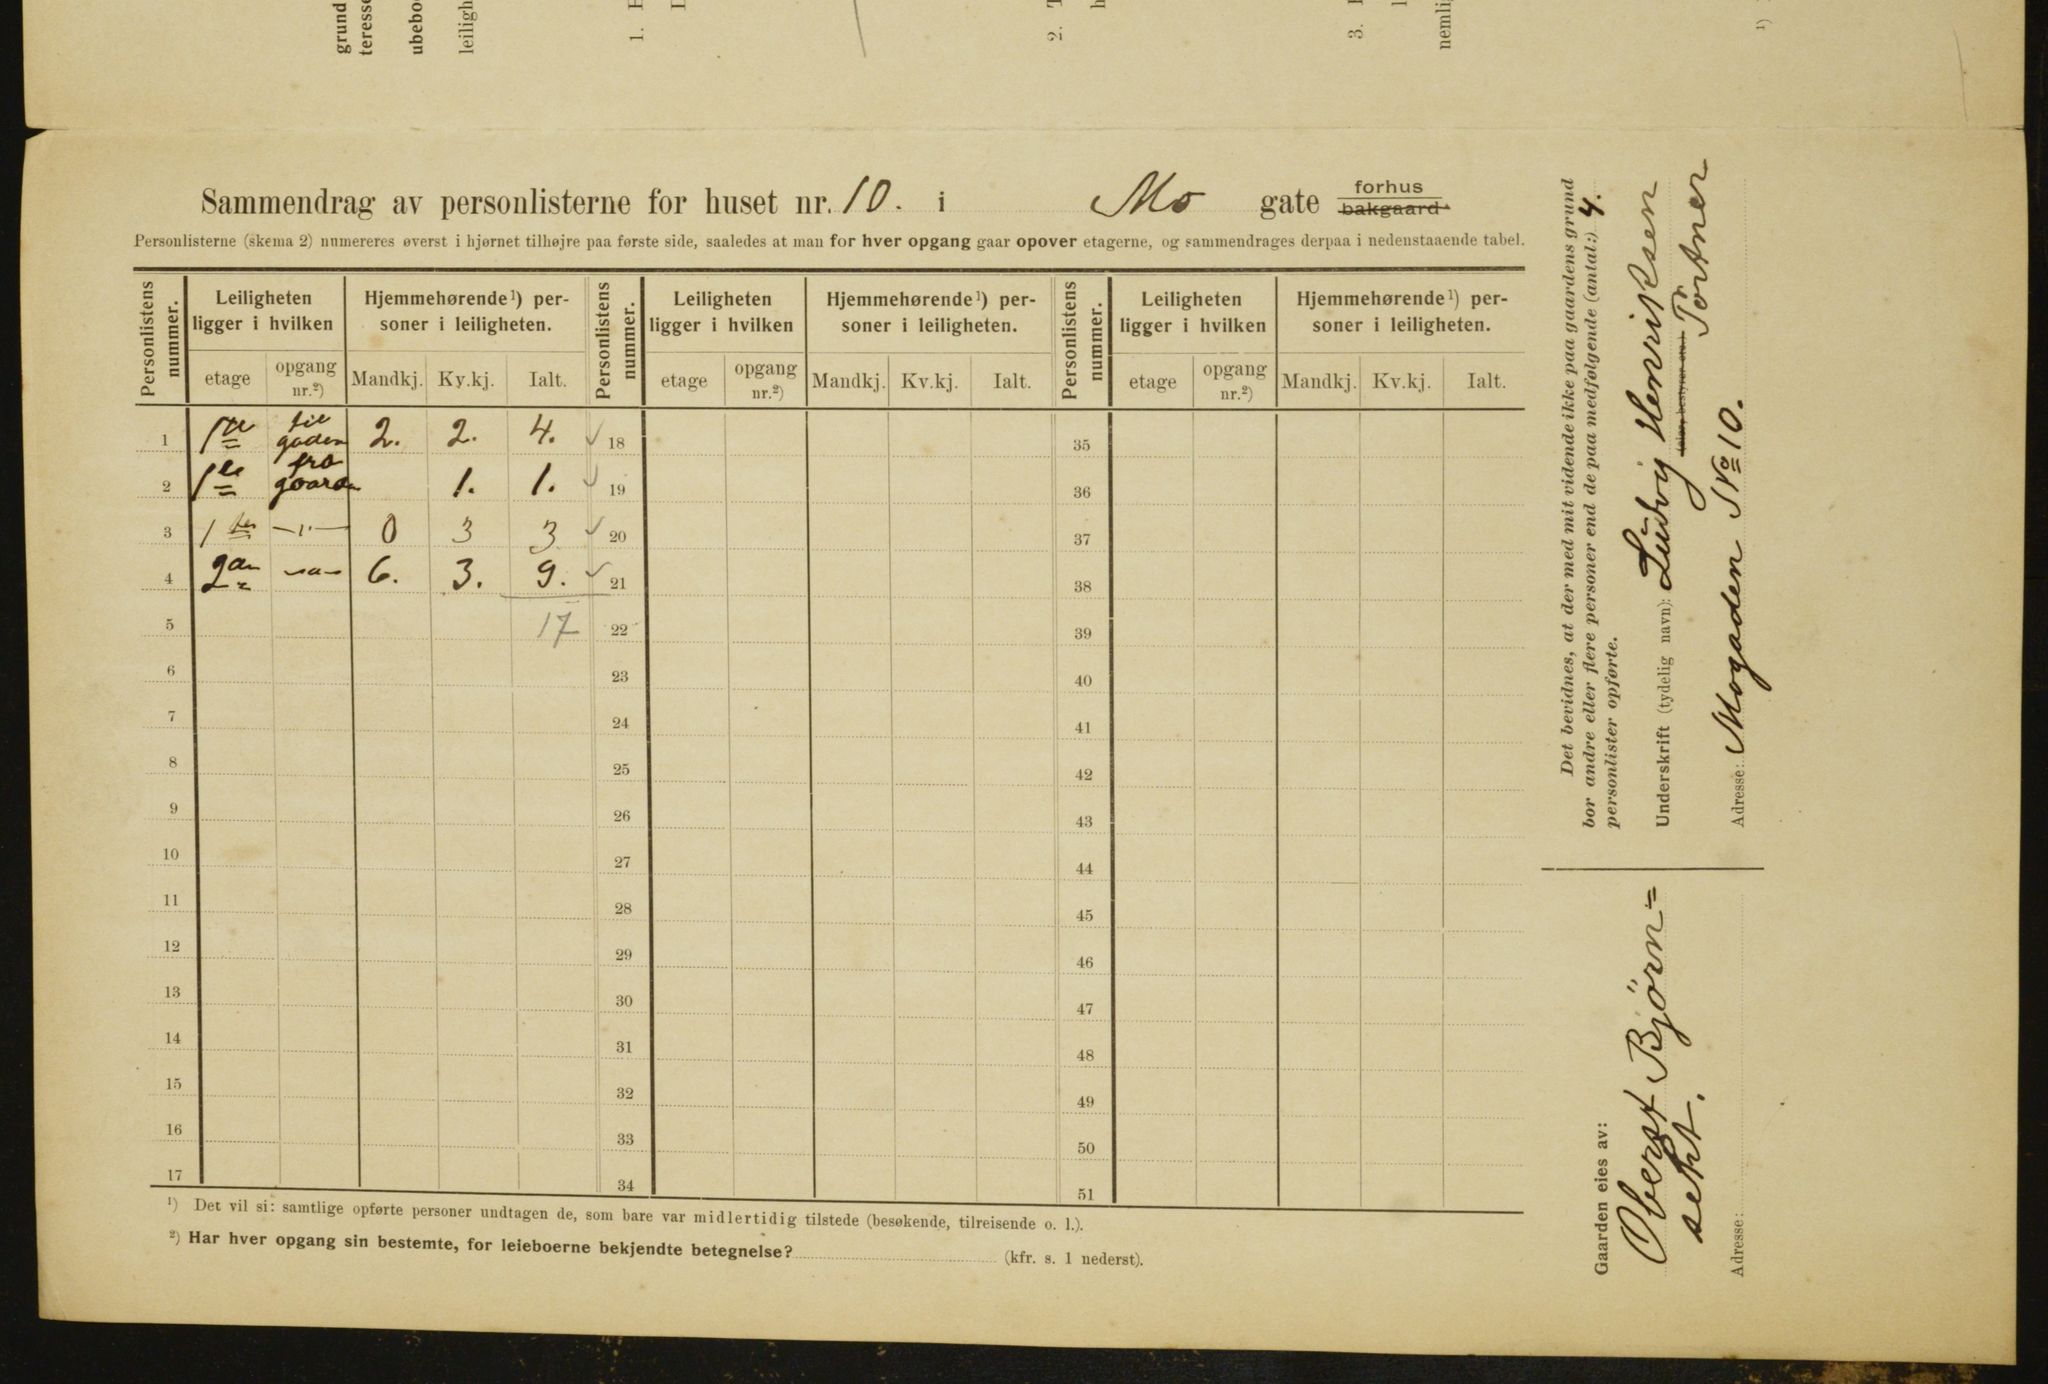 grund
teresse
ubebo
leiligh
1.
2.
3.
nemli
1)
Sammendrag av personlisterne for huset nr. 10. i Mo gate forhus bakgaard
Personlisterne (skema 2) numereres øverst i hjørnet tilhøjre paa første side, saaledes at man for hver opgang gaar opover etagerne, og sammendrages derpaa i nedenstaaende tabel.
Personlistens nummer. | Leiligheten ligger i hvilken | Hjemmehørende ¹) personer i leiligheten. | Personlistens nummer. | Leiligheten ligger i hvilken | Hjemmehørende ¹) personer i leiligheten. | Personlistens nummer. | Leiligheten ligger i hvilken | Hjemmehørende ¹) personer i leiligheten.
etage | opgang nr.²) | Mandkj. | Kv.kj. | Ialt. | etage | opgang nr.²) | Mandkj. | Kv.kj. | Ialt. | etage | opgang nr.²) | Mandkj. | Kv.kj. | Ialt.
1 | 1ste | til gaden | 2. | 2. | 4. ✓ | 18 | 35
2 | 1ste | fra gaarden | 1. | 1. ✓ | 19 | 36
3 | 1ste | —"— | 0 | 3 | 3 ✓ | 20 | 37
4 | 2an | —"— | 6. | 3. | 9. ✓ | 21 | 38
5 | 17 | 22 | 39
6 | 23 | 40
7 | 24 | 41
8 | 25 | 42
9 | 26 | 43
10 | 27 | 44
11 | 28 | 45
12 | 29 | 46
13 | 30 | 47
14 | 31 | 48
15 | 32 | 49
16 | 33 | 50
17 | 34 | 51
¹) Det vil si: samtlige opførte personer undtagen de, som bare var midlertidig tilstede (besøkende, tilreisende o. l.).
²) Har hver opgang sin bestemte, for leieboerne bekjendte betegnelse? (kfr. s. 1 nederst).
Det bevidnes, at der med mit vidende ikke paa gaardens grund
bor andre eller flere personer end de paa medfølgende (antal:) 4.
personlister opførte.
Underskrift (tydelig navn): Ludvig Henriksen
(eier, bestyrer etc.) Portner
Adresse: Mogaden No 10.
Gaarden eies av:
Oberst Bjørn=
seht.
Adresse: